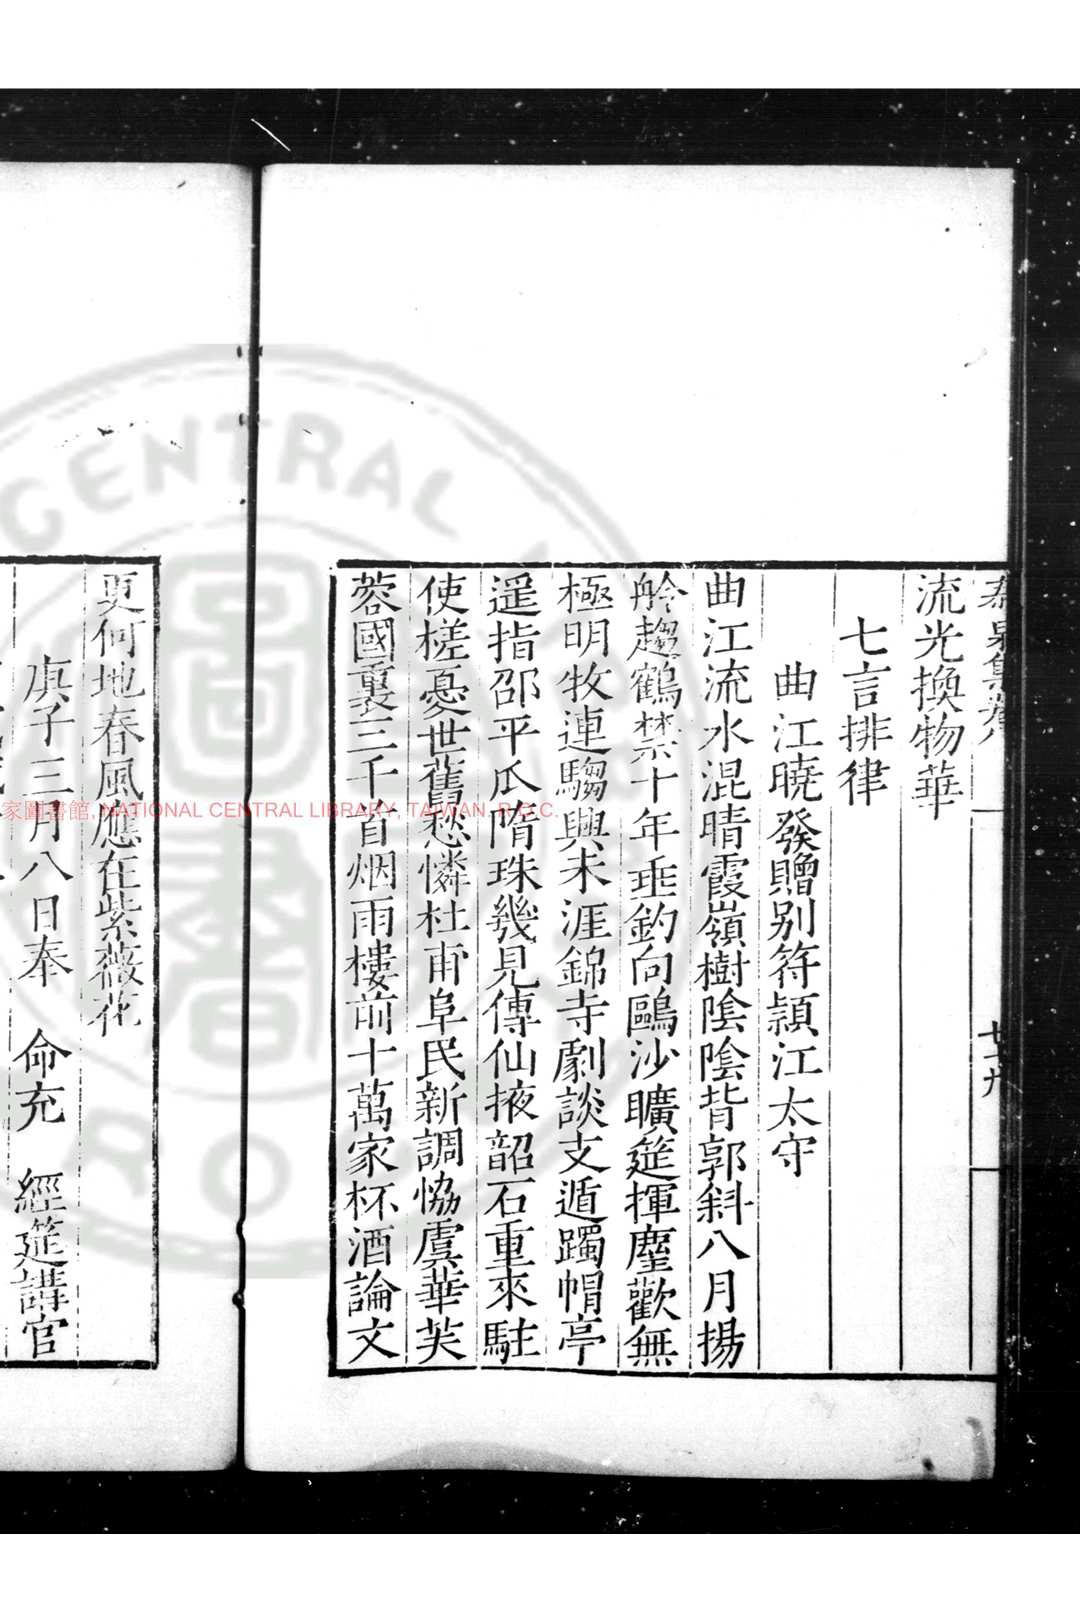 泰泉集卷八
流光換物華
七言排律
曲江曉發贈别符潁江太守
曲江流水混晴霞嶺樹陰陰背郭斜八月揚
舲趨鶴禁十年垂釣向鷗沙曠筵揮麈歡無
極明牧連騶興未涯錦寺劇談支遁躅帽亭
遥指邵平瓜隋珠幾見傳仙掖韶石重來駐
使槎憂世舊愁憐杜甫阜民新調恊虞華芙
蓉國裏三千首烟雨樓前十萬家杯酒論文
更何地春風應在紫薇花
庚子三月八日奉 命充 經筵講官
家圖書館, NATIONAL CENTRAL LIBRARY, TAIWAN, R.O.C.
CENTRAL L